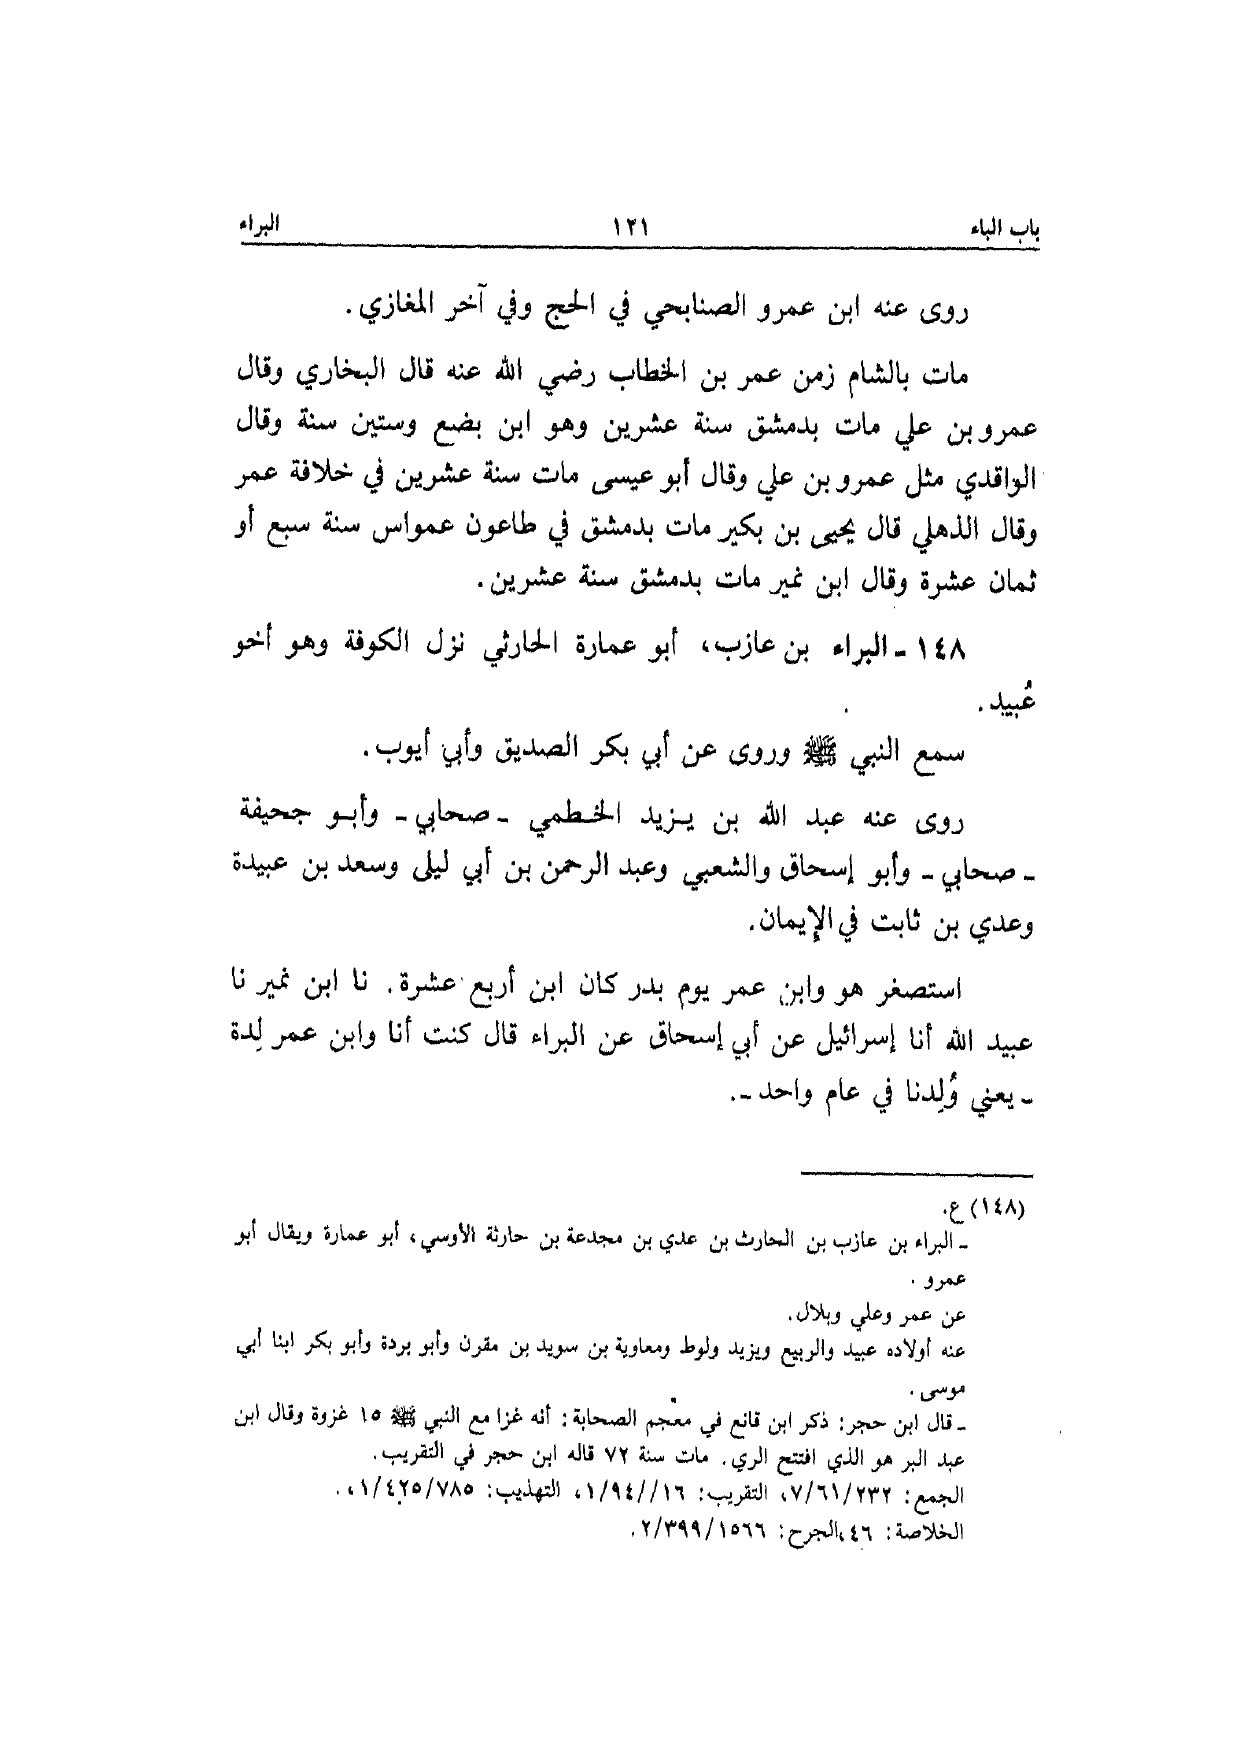 باب الباء ١٢١ البراء
روى عنه ابن عمرو الصنابحي في الحج وفي آخر المغازي.
مات بالشام زمن عمر بن الخطاب رضي الله عنه قال البخاري وقال
عمرو بن علي مات بدمشق سنة عشرين وهو ابن بضع وستين سنة وقال
الواقدي مثل عمرو بن علي وقال أبو عيسى مات سنة عشرين في خلافة عمر
وقال الذهلي قال يحيى بن بكير مات بدمشق في طاعون عمواس سنة سبع أو
ثمان عشرة وقال ابن نمير مات بدمشق سنة عشرين.
١٤٨ - البراء بن عازب، أبو عمارة الحارثي نزل الكوفة وهو أخو
عُبيد.
سمع النبي ﷺ وروى عن أبي بكر الصديق وأبي أيوب.
روى عنه عبد الله بن يزيد الخطمي - صحابي - وأبو جحيفة
- صحابي - وأبو إسحاق والشعبي وعبد الرحمن بن أبي ليلى وسعد بن عبيدة
وعدي بن ثابت في الإيمان.
استصغر هو وابن عمر يوم بدر كان ابن أربع عشرة. نا ابن نمير نا
عبيد الله أنا إسرائيل عن أبي إسحاق عن البراء قال كنت أنا وابن عمر لِدة
- يعني وُلِدنا في عام واحد -.
(١٤٨) ع.
- البراء بن عازب بن الحارث بن عدي بن مجدعة بن حارثة الأوسي، أبو عمارة ويقال أبو
عمرو.
عن عمر وعلي وبلال.
عنه أولاده عبيد والربيع ويزيد ولوط ومعاوية بن سويد بن مقرن وأبو بردة وأبو بكر ابنا أبي
موسى.
- قال ابن حجر: ذكر ابن قانع في معجم الصحابة: أنه غزا مع النبي ﷺ ١٥ غزوة وقال ابن
عبد البر هو الذي افتتح الري. مات سنة ٧٢ قاله ابن حجر في التقريب.
الجمع: ٧/٦١/٢٣٢، التقريب: ١/٩٤//١٦، التهذيب: ١/٤٢٥/٧٨٥،.
الخلاصة: ٤٦،الجرح: ٢/٣٩٩/١٥٦٦.